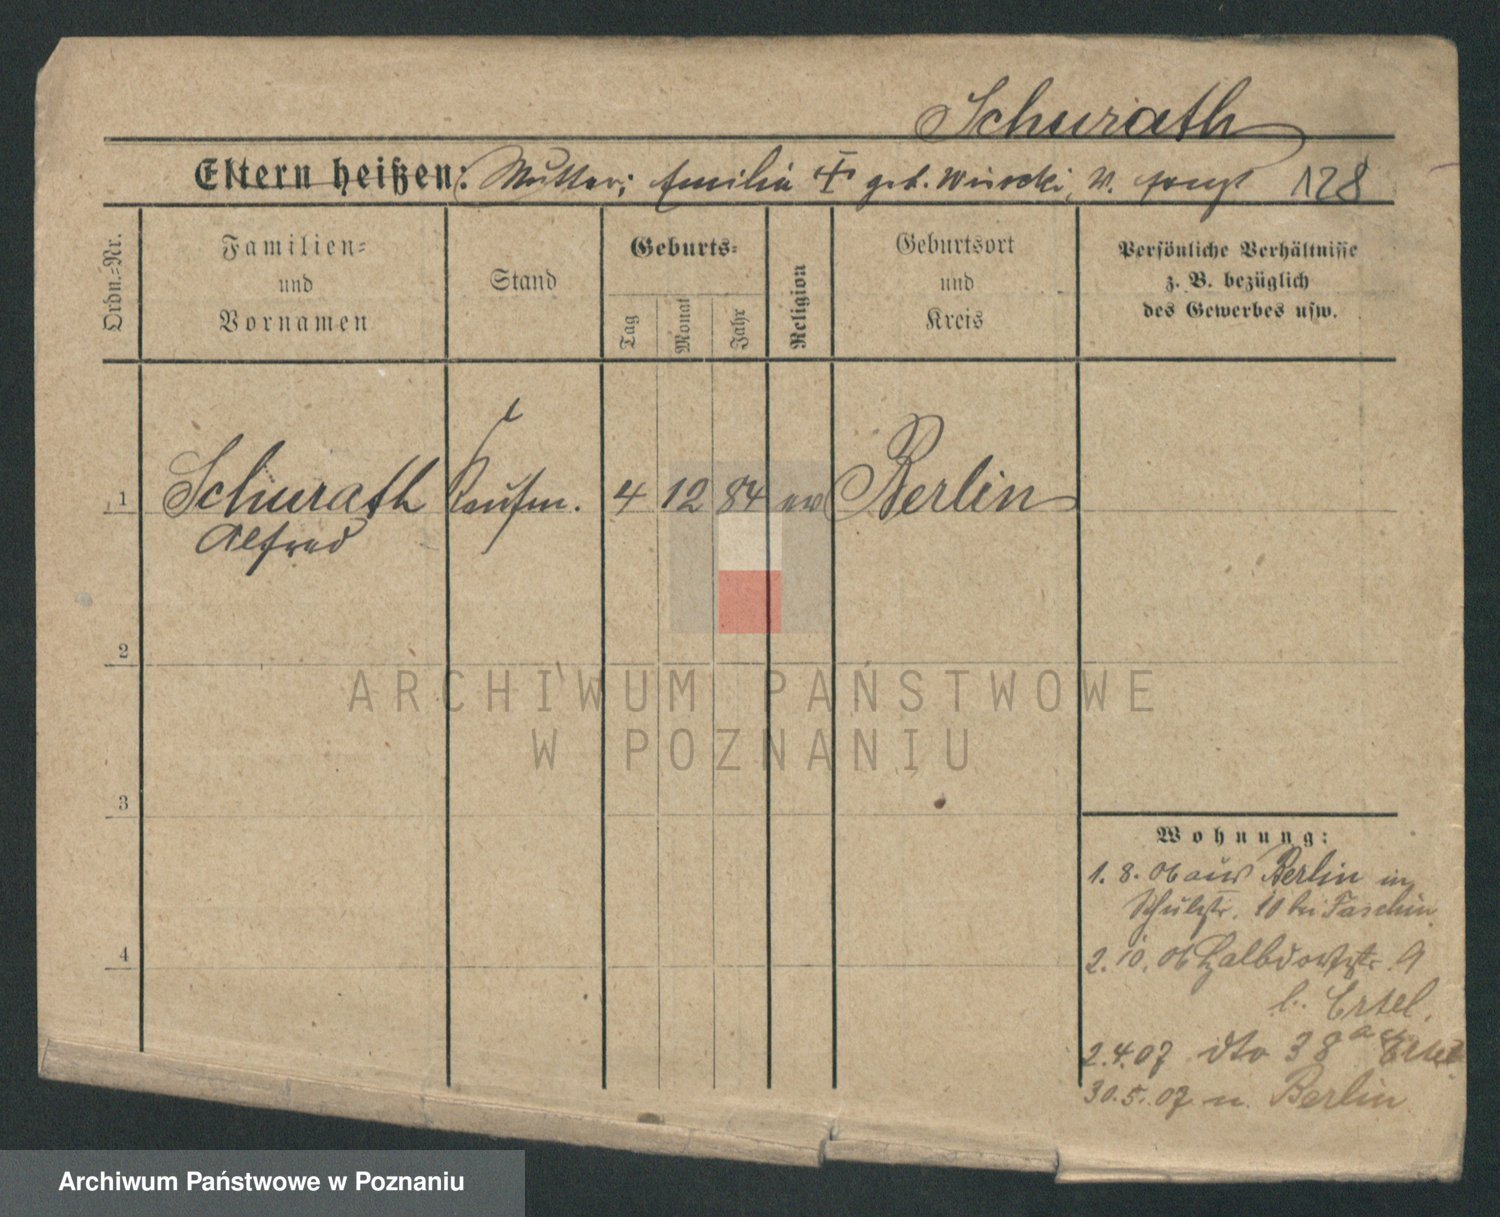 Schurath
Eltern heißen: Mutter: Emilia geb. 128
Ordn.-Nr.
Familien-
und
Vornamen
Stand
Geburts-
Tag
Monat
Jahr
Religion
Geburtsort
und
Kreis
Persönliche Verhältnisse
z. B. bezüglich
des Gewerbes usw.
1 Schurath Kaufm. 4 12 84 ev Berlin
Alfred
2
ARCHIWUM PAŃSTWOWE
W POZNANIU
3
Wohnung:
1. 8. 06 aus Berlin in
Schulstr. 10 bei Faschin
4
2. 10. 06 Halbdorfstr. 9
b. Ertel.
2. 4. 07 dto 38a Ertel
30. 5. 07 n. Berlin
Archiwum Państwowe w Poznaniu